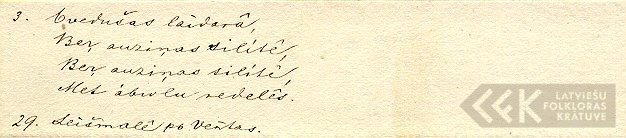 3. Evedušas laidarâ,
Beŗ auziņas silítê,
Beŗ auziņas silítê,
Met âboļu redelês.
29. Leišmalê pb Ventas.
LATVIEŠU
FOLKLORAS
KRĀTUVE